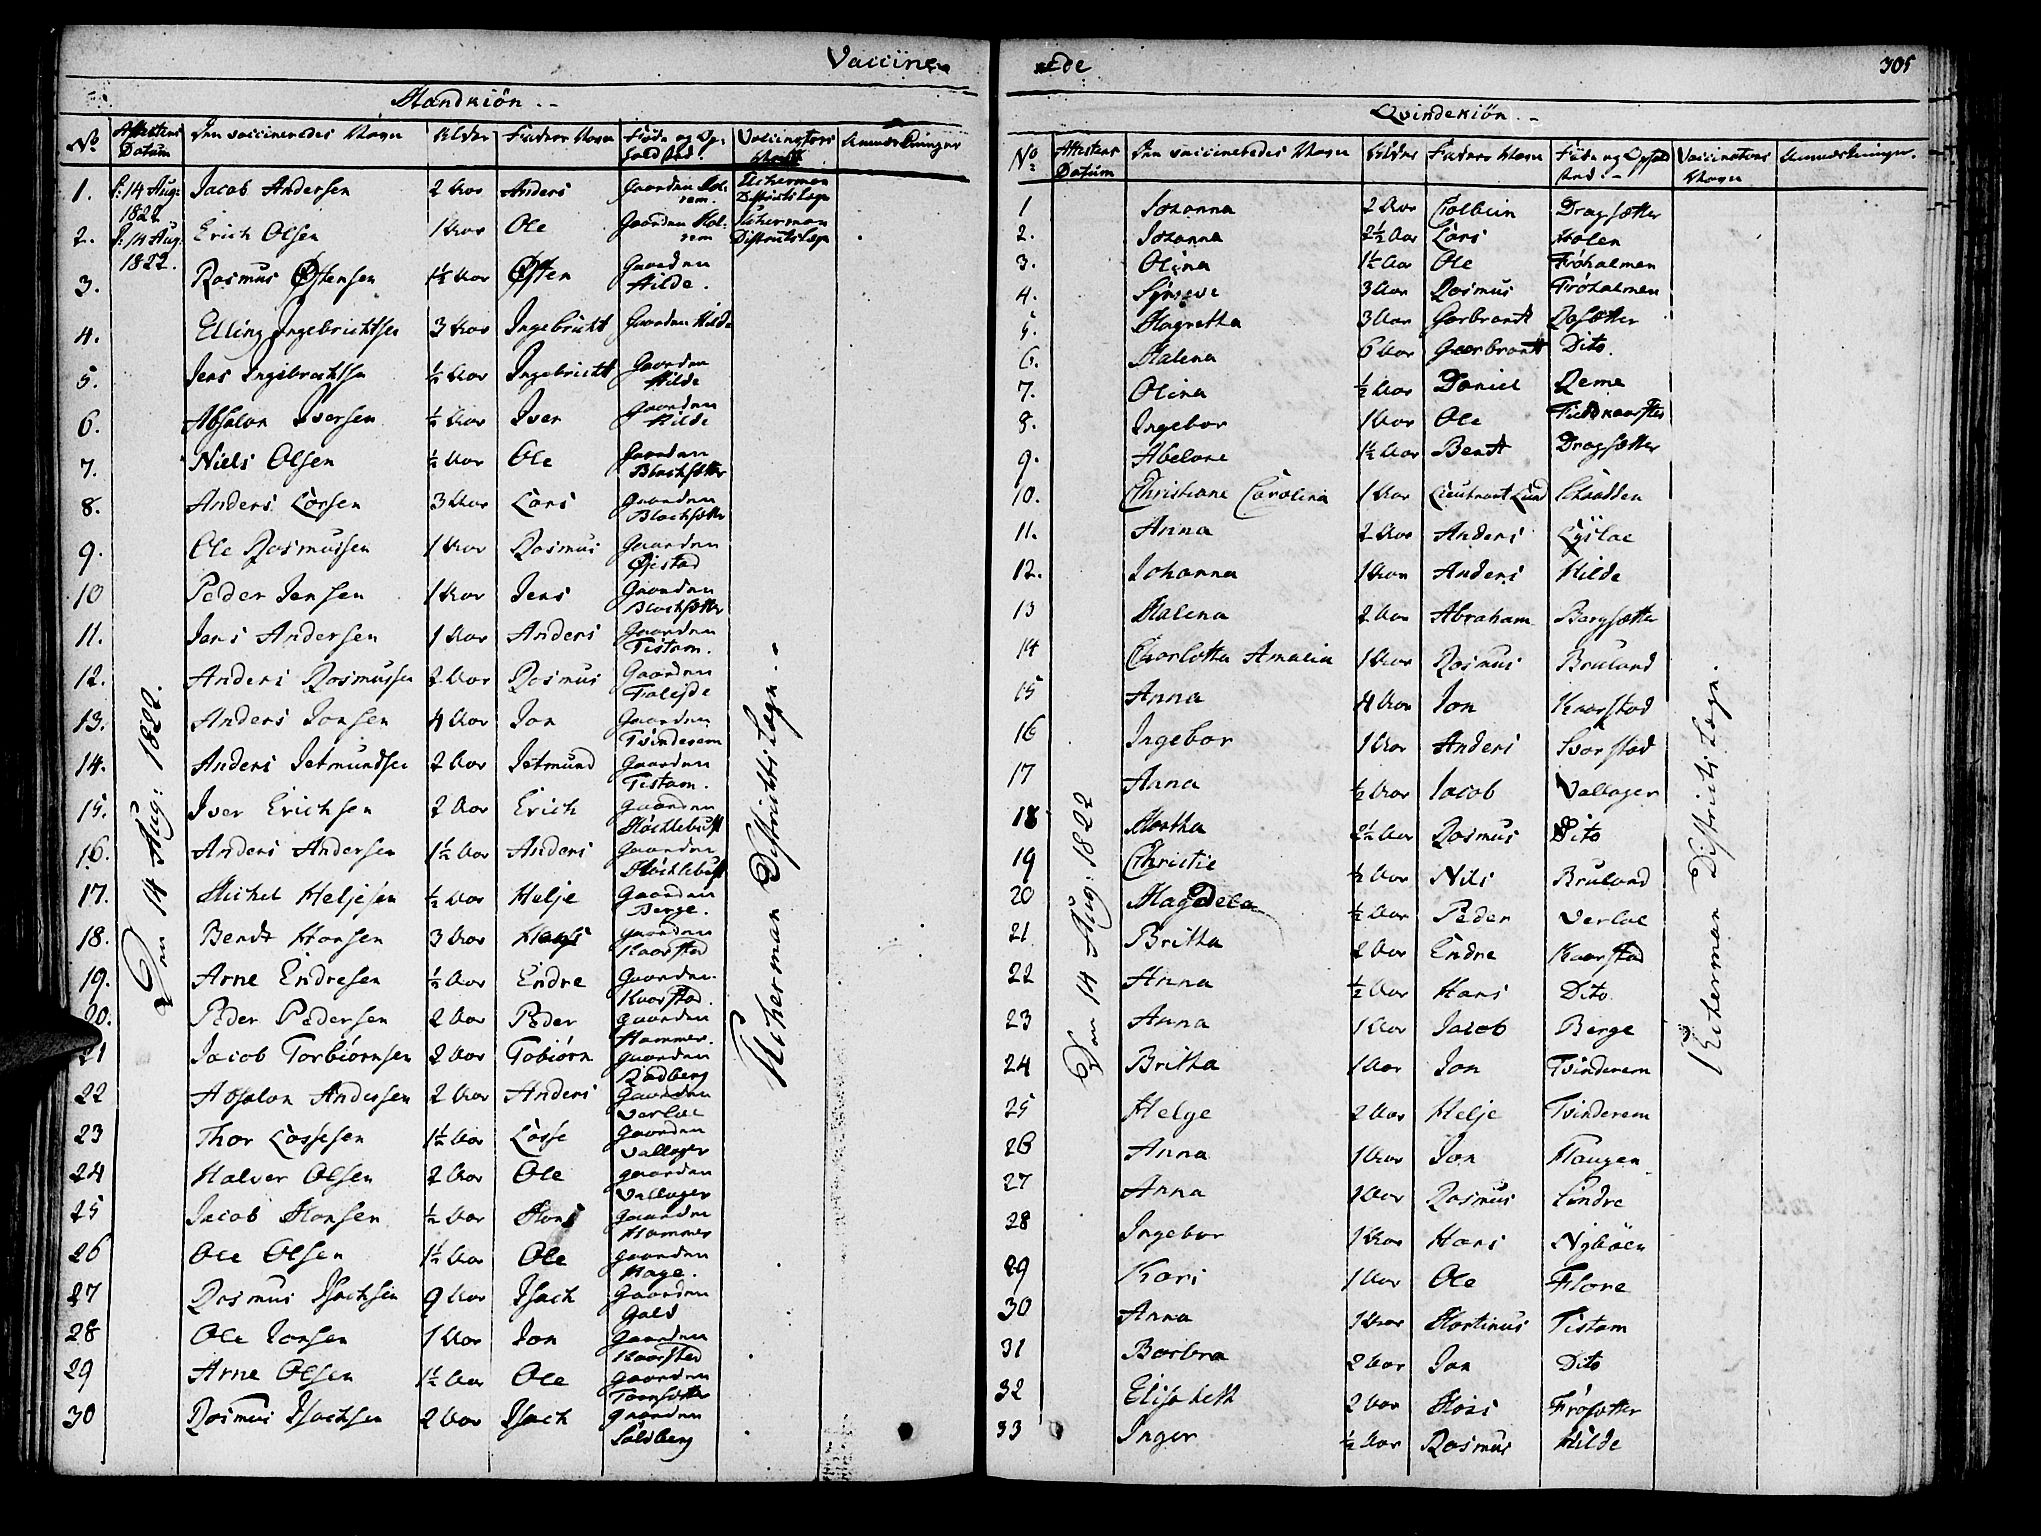 Vaccine
Mandkiön
No Attestens Datum Den vaccineredes Navn Alder Faders Navn Føde og Op- hold sted. Vaccinateurs Navn Anmærkninger
1. d: 14 Aug: 1822 Jacob Andersen 2 Aar Anders Gaarden
2. d: 14 Aug. 1822. Erich Olsen 1 Aar Ole Gaarden
3. Rasmus Østensen 1½ Aar Østen Gaarden Hilde.
4. Elling Ingebrichtsen 3 Aar Ingebricht Gaarden Hilde
5. Jens Ingebrichtsen ½ Aar Ingebricht Gaarden Hilde
6. Absalon Iversen ½ Aar Iver Gaarden Hilde
7. Niels Olsen ½ Aar Ole Gaarden Blachsætter
8. Anders Larsen 3 Aar Lars Gaarden Blachsætter
9. Ole Rasmussen 1 Aar Rasmus Gaarden Øistad
10 Peder Jensen 1 Aar Jens Gaarden Blachsætter
11. Jens Andersen 1 Aar Anders Gaarden Tistam.
12. Anders Rasmussen 2 Aar Rasmus Gaarden
13. Anders Jonsen 4 Aar Jon Gaarden Tvinderem
14. Anders Jetmundsen 2 Aar Jetmund Gaarden Tistam.
15. Iver Erichsen 2 Aar Erich Gaarden
16. Anders Andersen 1½ Aar Anders Gaarden
17. Michel Heljesen ½ Aar Helje Gaarden Berge.
18. Bendt Hansen 3 Aar Hans Gaarden Kaarstad
19. Arne Endresen ½ Aar Endre Gaarden Kaarstad.
20. Peder Pedersen 2 Aar Peder Gaarden Hammer.
21 Jacob Torbiørnsen 2 Aar Tobiørn Gaarden Rødberg
22 Absalon Andersen 2 Aar Anders Gaarden Verlae
23 Thor Lassesen 1½ Aar Lasse Gaarden Vallager
24 Halver Olsen 2 Aar Ole Gaarden Vallager
25 Jacob Hansen ½ Aar Hans Gaarden Hammer
26 Ole Olsen 1½ Aar Ole Gaarden Hage.
27 Rasmus Isachsen 9 Aar Isach Gaarden Gald
28 Ole Jonsen 1 Aar Jon Gaarden Kaarstad
29 Arne Olsen 1½ Aar Ole Gaarden
30 Rasmus Isachsen 2 Aar Isach Gaarden Soldberg
Den 14 Aug: 1822.
Districtslæge
rede
305
Qvindekiön
No Attestens Datum Den vaccineredes Navn Alder Faders Navn Føde og Ophold sted. Vaccinateurs Navn Anmærkninger.
1 Johanna 2 Aar Colbein Dragsætter
2. Johanna 2½ Aar Lars Holen
3. Olina 1½ Aar Ole Frøholmen
4. Synneve 3 Aar Rasmus Frøholmen
5. Magretha 3 Aar Garbrandt
6. Malena 6 Aar Garbrandt Dito.
7. Olina ½ Aar Daniel Reme
8. Ingebor 1 Aar Ole
9. Abelone 1½ Aar Bendt Dragsætter
10. Christiane Carolina 1 Aar Lieutnant Lund
11. Anna 2 Aar Anders
12. Johanna 1 Aar Anders Hilde
13 Malena 2 Aar Abraham Bergsætter
14 Charlotta Amalia 1 Aar Rasmus Bruland
15 Anna 4 Aar Jon Kaarstad
16 Ingebor 1 Aar Anders Svarstad
17 Anna ½ Aar Jacob Vallager
18 Martha 2½ Aar Rasmus Dito
19 Christie ½ Aar Nils Bruland
20 Magdela ½ Aar Peder Verlae
21 Britha 2 Aar Endre Kaarstad
22 Anna ½ Aar Hans Dito.
23 Anna 1 Aar Jacob Berge
24 Britha 1 Aar Jon Tvinderem
25 Helge 2 Aar Helje Tvinderem
26 Anna 1 Aar Jon Haugen
27 Anna 1 Aar Rasmus Lindre
28 Ingebor 1 Aar Hans Nybøen
29 Kari 1 Aar Ole Flore
30 Anna 1 Aar Martinus Tistam
31 Barbra 2 Aar Jon Dito
32 Elisabeth 2 Aar Hans Frøsætter
33 Inger ½ Aar Rasmus Hilde
Den 14 Aug: 1822
Districts Læge.